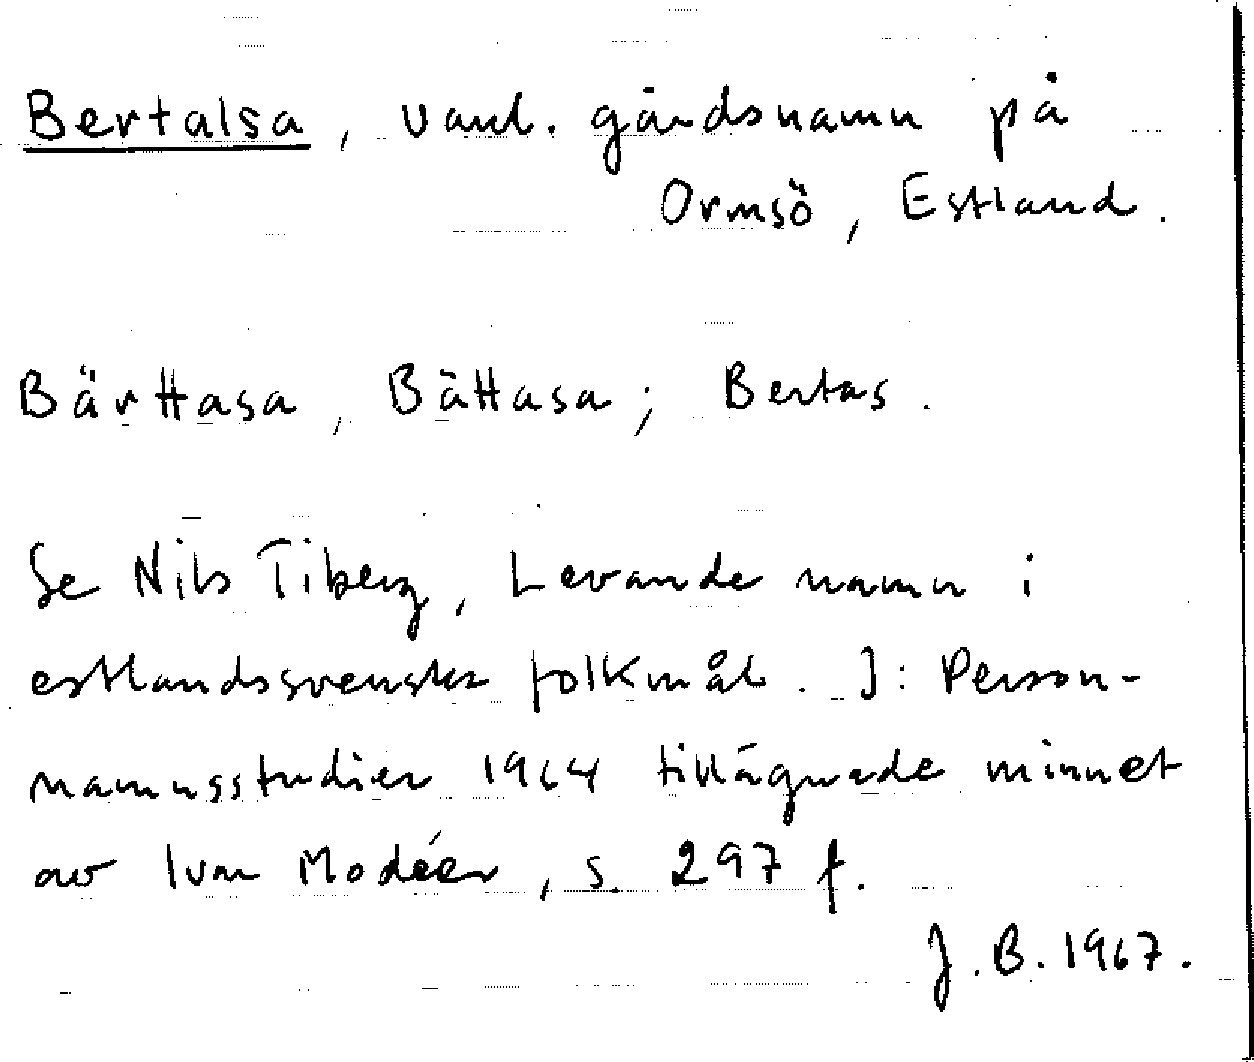 Bertalsa, vanl. gårdsnamn på
Ormsö, Estland.
Bärttasa, Bättasa; Bertas.
Se Nils Tiberg, Levande namn i
estlandssvenska folkmål. I: Person-
namnsstudier 1964 tillägnade minnet
av Ivar Modéer, s. 297 f.
J.B. 1967.